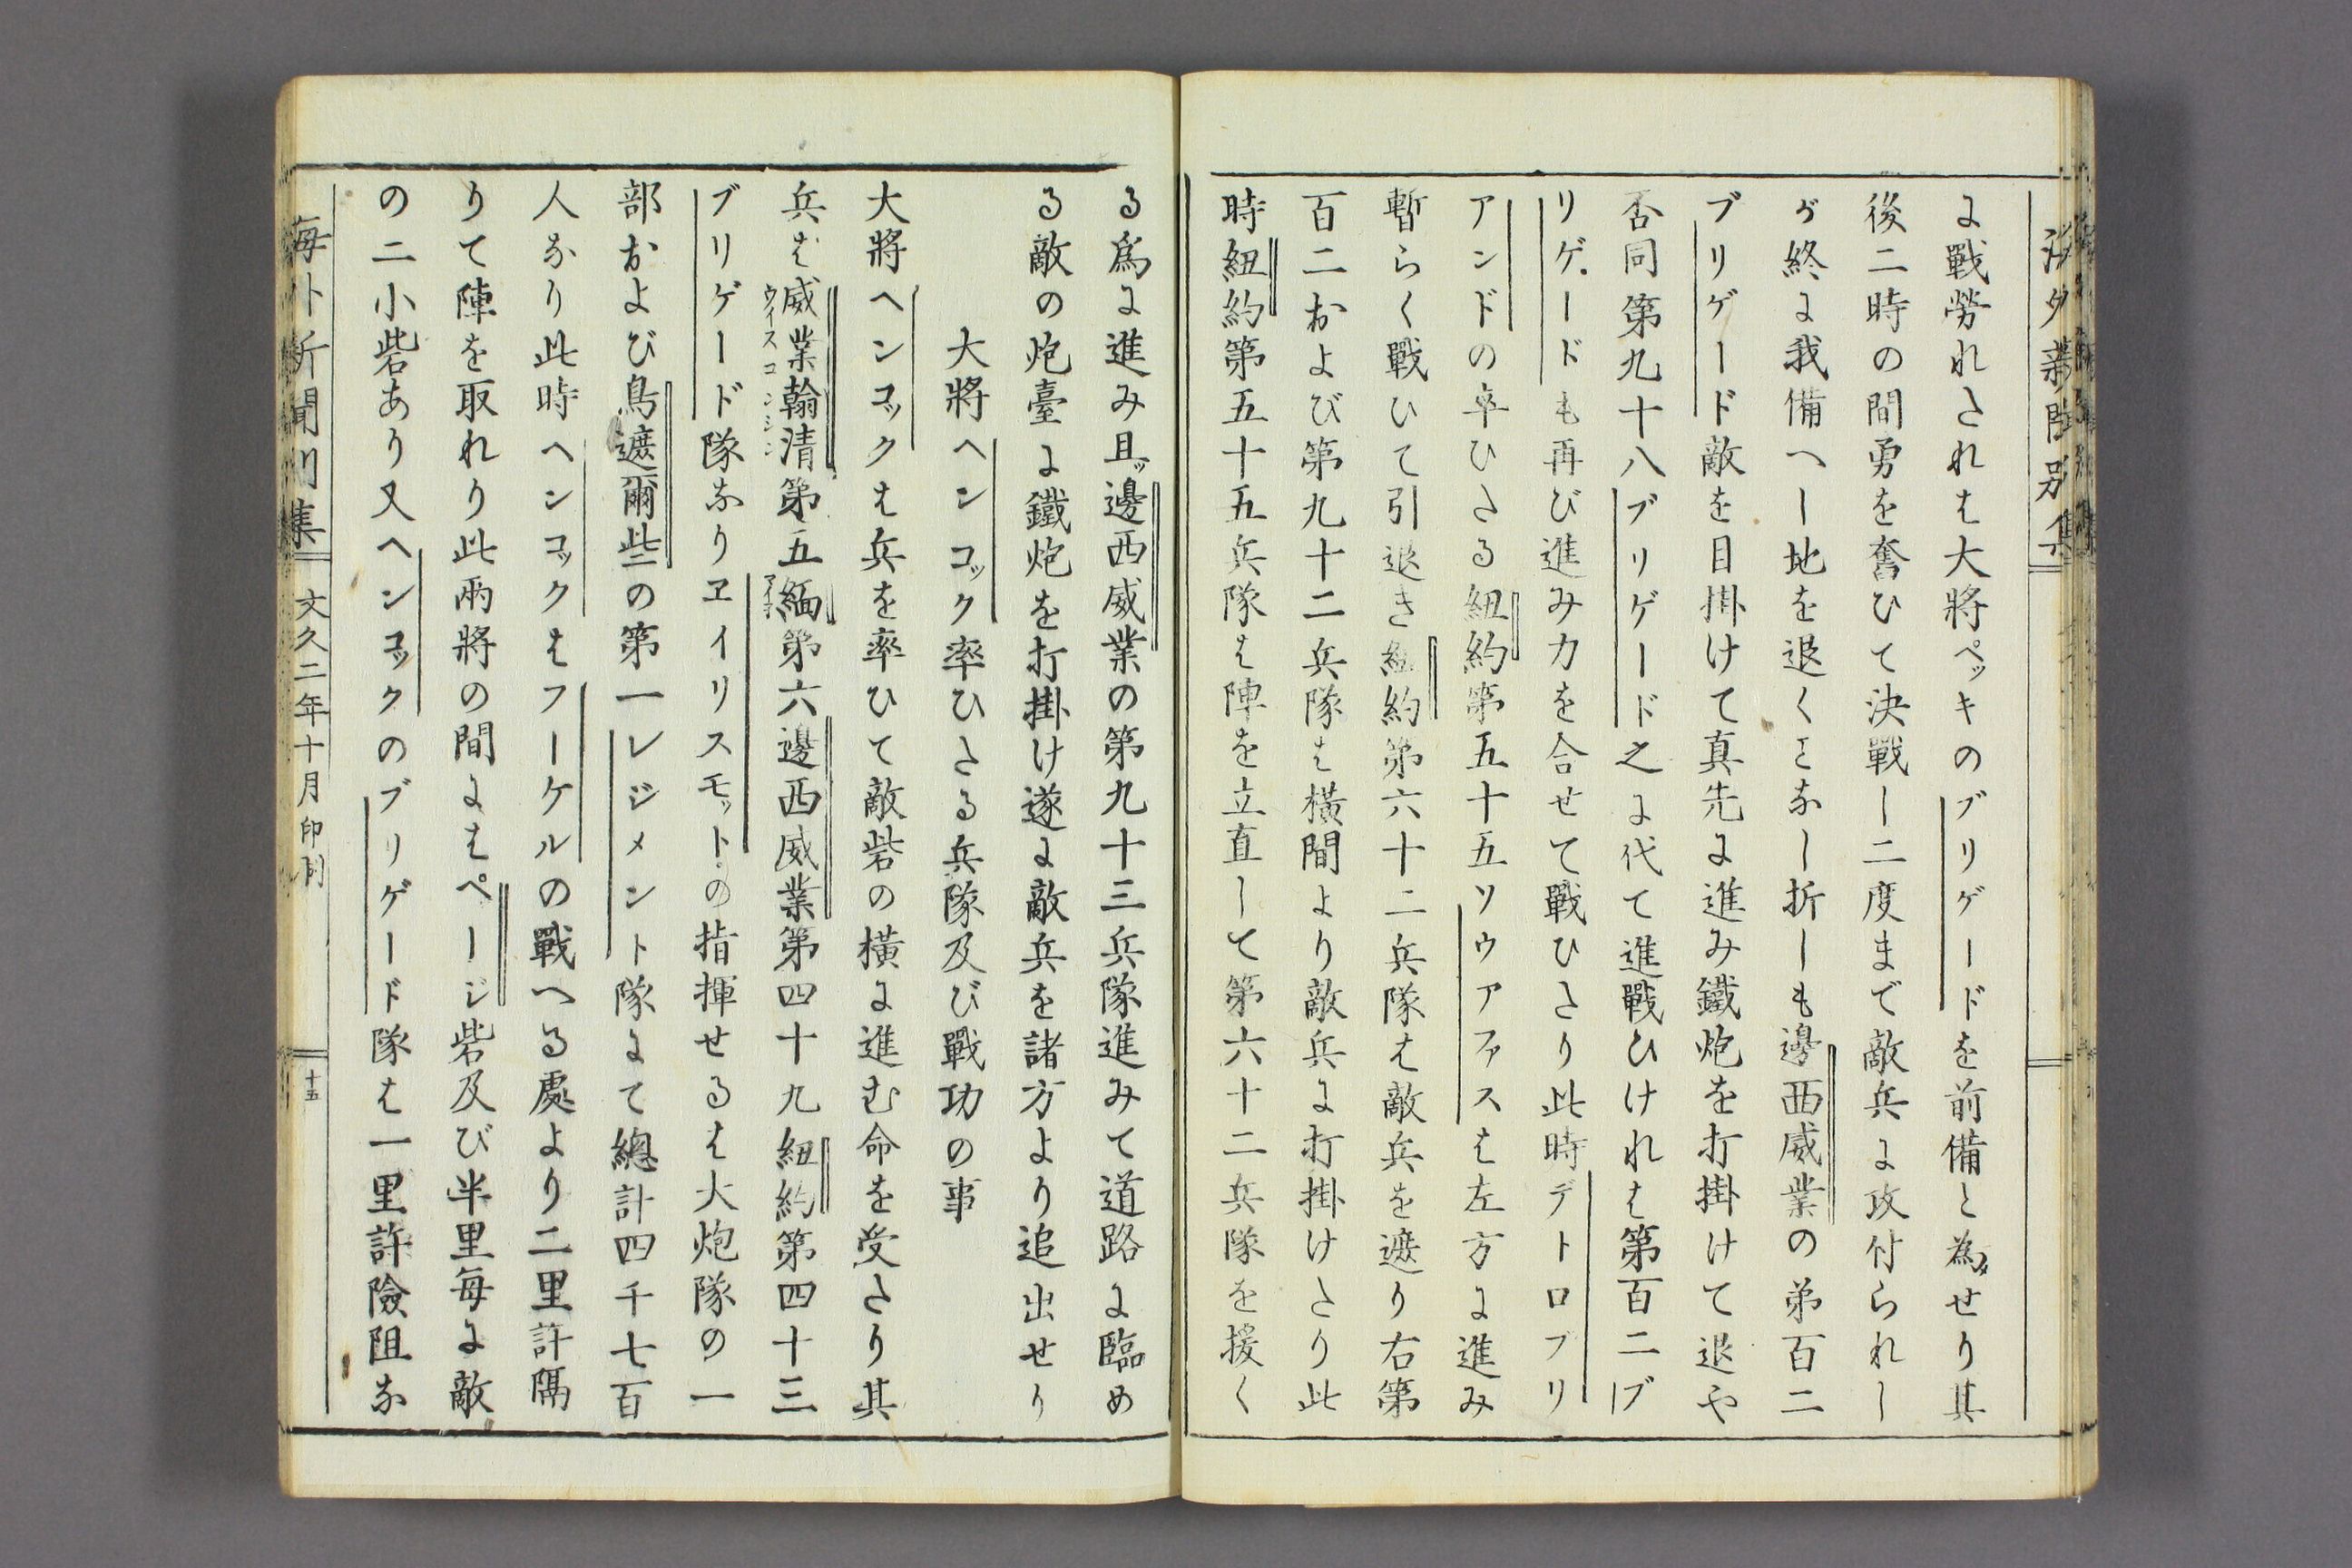 に戰勞れたれは大將ペッキのブリゲードを前備と為せり其
後二時の間勇を奮ひて決戰し二度まで敵兵に攻付られし
が終に我備へし地を退くことなし折しも邊西威業の弟百二
ブリゲード敵を目掛けて真先に進み鐵炮を打掛けて退や
否同第九十八ブリゲード之に代て進戰ひけれは第百二ブ
リゲードも再び進み力を合せて戰ひたり此時デトロブリ
アンドの卒ひたる紐約第五十五ソウアファスは左方に進み
暫らく戰ひて引退き紐約第六十二兵隊は敵兵を遮り右第
百二および第九十二兵隊は橫間より敵兵に打掛けたり此
時紐約第五十五兵隊は陣を立直して第六十二兵隊を援く
る爲に進み且ッ邊西威業の第九十三兵隊進みて道路に臨め
る敵の炮臺に鐵炮を打掛け遂に敵兵を諸方より追出せり
大將ヘンコック率ひたる兵隊及び戰功の事
大將ヘンコックは兵を率ひて敵砦の橫に進む命を受たり其
兵は威業翰清ウイスコンシン第五緬第六邊西威業第四十九紐約第四十三
ブリゲード隊なりヱイリスモットの指揮せるは大炮隊の一
部および鳥遮爾些の第一レジメント隊にて總計四千七百
人なり此時ヘンコックはフーケルの戰へる處より二里許隔
りて陣を取れり此兩將の間にはページ砦及び半里毎に敵
の二小砦あり又ヘンコックのブリゲード隊は一里許險阻な
海外新聞別集 文久二年十月印刷 十五